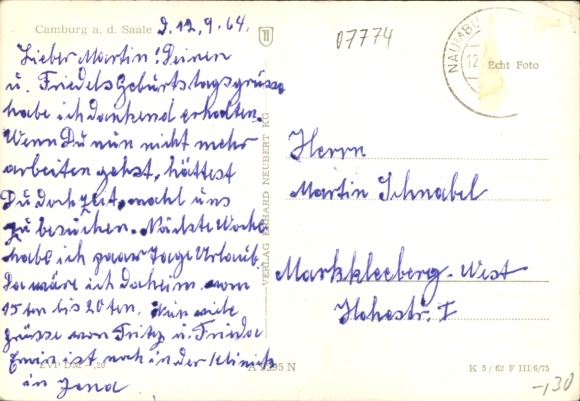 Camburg a. d. Saale
D. 12. 9. 64.
Lieber Martin! Deinen
u. Friedels Geburtstagsgrüsse
habe ich dankend erhalten.
Wenn Du nun nicht mehr
arbeiten gehst, hättest
Du doch Zeit, mahl uns
zu besuchen. Nächste Woche
habe ich paar Tage Urlaub
Da wäre ich daheim vom
15ten bis 20ten. Nun viele
Grüsse von Fritz u. Frieda
ist noch in der Klinik
in Jena
EVP DM -,20
A 5295 N
VERLAG ERHARD NEUBERT KG
07774
NAUMBU
12
Echt Foto
Herrn
Martin Schnabel
Markkleeberg-West
Hohestr. I
K 5/62 F III/6/75
-,130